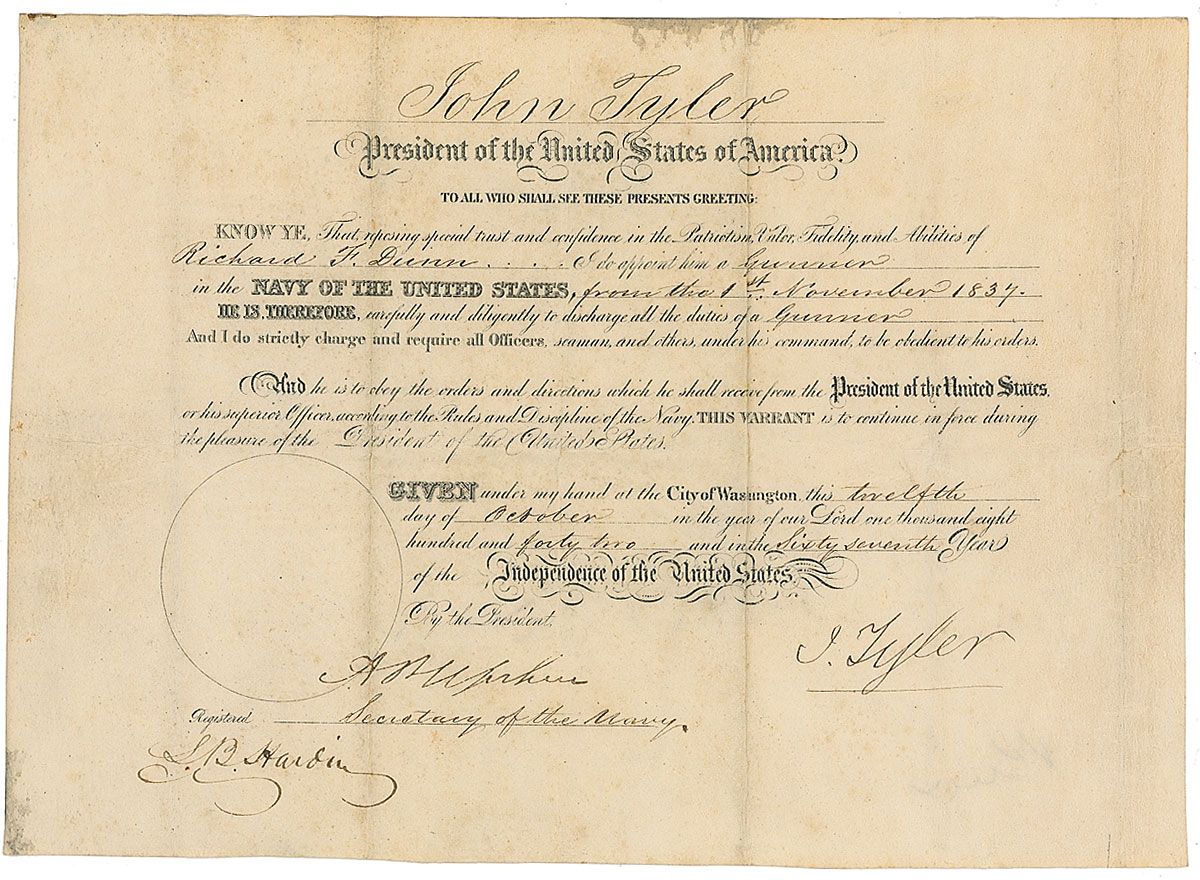 John Tyler
President of the United States of America.
TO ALL WHO SHALL SEE THESE PRESENTS GREETING:
KNOW YE, That, reposing special trust and confidence in the Patriotism, Valor, Fidelity, and Abilities of
Richard F. Dunn . . . . I do appoint him a Gunner
in the NAVY OF THE UNITED STATES, from the 1st November 1837.
HE IS, THEREFORE, carefully and diligently to discharge all the duties of a Gunner
And I do strictly charge and require all Officers, seaman, and others, under his command, to be obedient to his orders.
And he is to obey the orders and directions which he shall receive from the President of the United States,
or his superior Officer, according to the Rules and Discipline of the Navy. THIS WARRANT is to continue in force during
the pleasure of the President of the United States.
GIVEN under my hand at the City of Washington, this twelfth
day of October in the year of our Lord one thousand eight
hundred and forty two and in the Sixty seventh Year
of the Independence of the United States.
By the President,
J. Tyler
A P Upshur
Registered Secretary of the Navy.
L. B. Hardin